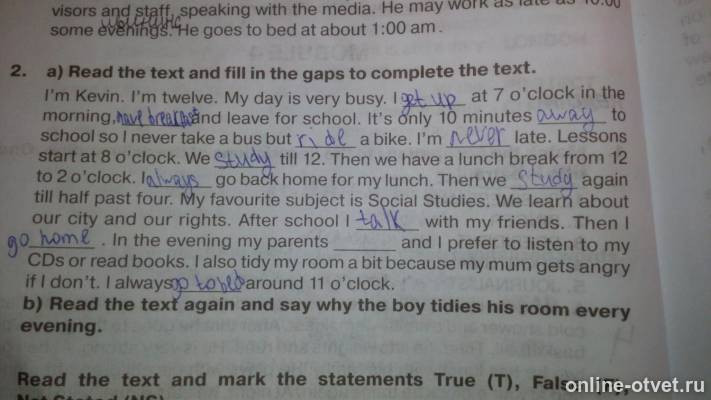 visors and staff, speaking with the media. He may work as late as 10:00
some evenings. He goes to bed at about 1:00 am.
2. a) Read the text and fill in the gaps to complete the text.
I'm Kevin. I'm twelve. My day is very busy. I get up at 7 o'clock in the
morning, have breakfast and leave for school. It's only 10 minutes away to
school so I never take a bus but ride a bike. I'm never late. Lessons
start at 8 o'clock. We study till 12. Then we have a lunch break from 12
to 2 o'clock. I always go back home for my lunch. Then we study again
till half past four. My favourite subject is Social Studies. We learn about
our city and our rights. After school I talk with my friends. Then I
go home. In the evening my parents ______ and I prefer to listen to my
CDs or read books. I also tidy my room a bit because my mum gets angry
if I don't. I always go to bed around 11 o'clock.
b) Read the text again and say why the boy tidies his room every
evening.
Read the text and mark the statements True (T), False (F),
online-otvet.ru